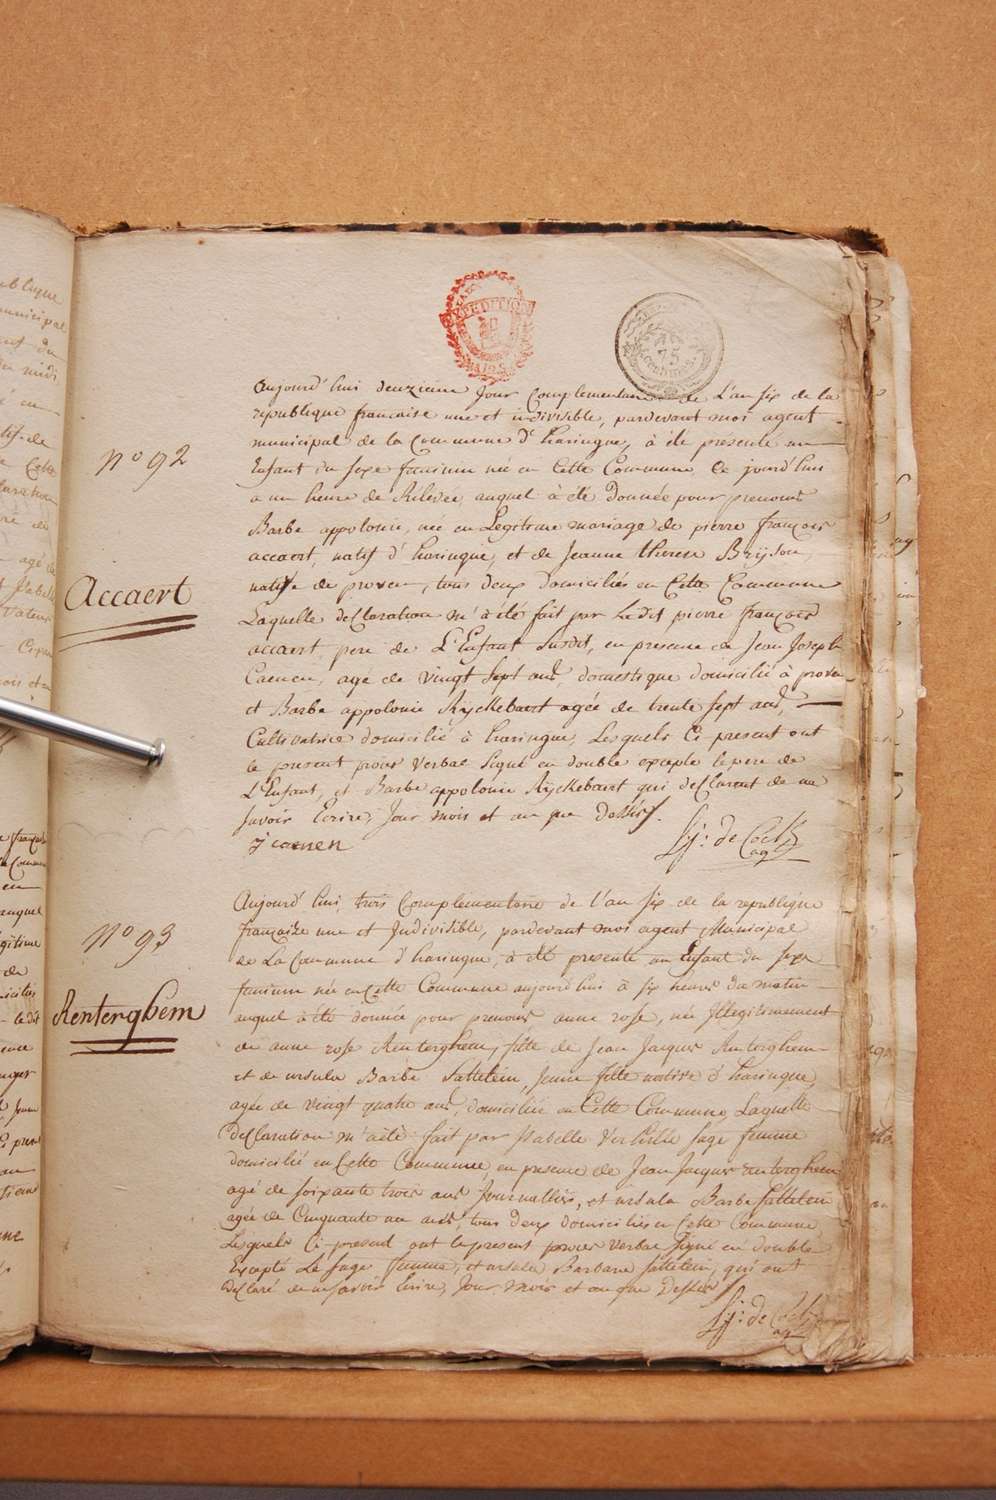 EXPEDITION
75
centimes
n° 92
Accaert
Aujourd'hui deuzieme Jour Complementaire de L'an six de la
republique francaise une et indivisible, pardevant moi agent
municipal de la Commune d'haringue, à été presenté un
Enfant du sexe faminin née en Cette Commune, Ce jourd'hui
a un heure de Rélévée, auquel à été Donnée pour prenoms
Barbe appolonie, née en Legitime mariage de pierre françois
accaert, natif d'haringue, et de Jeanne therese Brijson,
native de proven, tous deux domiciliés en Cette Commune
Laquelle declaration m'à été fait par Ledit pierre françois
accaert pere de L'Enfant susdit, en presence de Jean Joseph
Caenen, agé de vingt sept ans, domestique domicilié à proven
et Barbe appolonie Rijckebaert agée de trente sept ans,
Cultivatrice domicilié à haringue, Lesquels Ci present ont
le present procès verbal signé en double excepté le pere de
L'Enfant, et Barbe appolonie Rijckebaert qui declarent de ne
savoir Ecrire, Jour mois et an que Dessus.
J caenen
Sy: de Cock
ag
n° 93
Renterghem
Aujourd'hui trois Complementaire de l'an six de la republique
françaize une et Indivisible, pardevant moi agent Municipal
de La Commune d'haringue, à été presenté un Enfant du sexe
faminin née en Cette Commune aujourd'hui à six heures du matin
auquel à été donnée pour prenoms anne rose, née Illegitimement
de anne rose Renterghem, fille de Jean Jacques Renterghem
et de ursula Barbe Sattelein, Jeune fille native d'haringue,
agée de vingt quatre ans, domiciliée en Cette Commune, Laquelle
declaration m'a été fait par Isabelle sage femme
domicilié en Cette Commune, en presence de Jean Jacques renterghem
agé de soixante trois ans Journallier, et ursula Barbe Sattelein
agée de Cinquante un ans, tous deux domiciliés en Cette Commune,
Lesquels Ci present ont le present procès verbal signé en double
Excepté Le sage femme, et ursula Barbara Sattelein, qui ont
declaré de ne savoir Ecrire, Jour, mois et an que Dessus
Sy: de Cock
ag